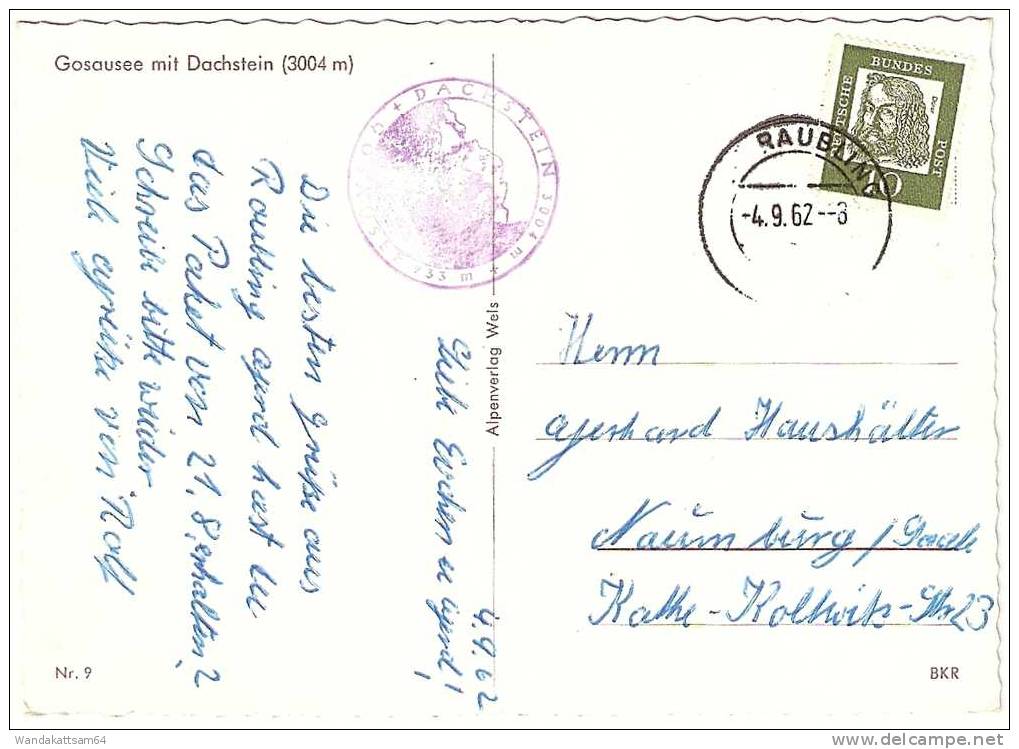 Gosausee mit Dachstein (3004 m)
DACHSTEIN 3004 m
933 m
DEUTSCHE
BUNDES
POST
10
RAUBLING
-4.9.62--8
4.9.62
Lieb Evchen u Gerd!
Die besten Grüße aus
Raubling Gerd hast du
das Paket von 21.8. erhalten?
Schreibe bitte wieder
Viele Grüße von Rolf
Alpenverlag Wels
Herrn
Gerhard Haushälter
Naumburg/Saale
Käthe-Kollwitz-Str 23
Nr. 9
BKR
Wandakattsam64
delcampe.net